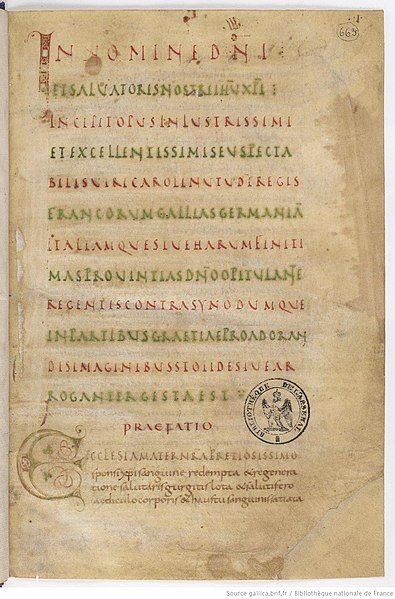 663
IN NOMINE DNI
ET SALVATORIS NOSTRI IHU XPI :
INCIPIT OPUS INLUSTRISSIMI
ET EXCELLENTISSIMI SEU SPECTA
BILIS VIRI CAROLI NUTU DI REGIS
FRANCORUM GALLIAS GERMANIĀ
ITALIAMQUE SIVE HARUM FINITI
MAS PROVINTIAS DNO OPITULANTE
REGENTIS CONTRA SYNODUM QUE
IN PARTIBUS GRAETIAE PRO ADORAN
DIS IMAGINIBUS STOLIDE SIVE AR
ROGANTER GESTA EST
PRAEFATIO
ECCLESIA MATER NRA PRETIOSISSIMO
sponsi xpi sanguine redempta & regenera
tione salutaris gurgitis lota & salutifero
corporis & haustu sanguinis satiata
BIBLIOTHÈQUE DE L'ARSENAL
Source gallica.bnf.fr / Bibliothèque nationale de France